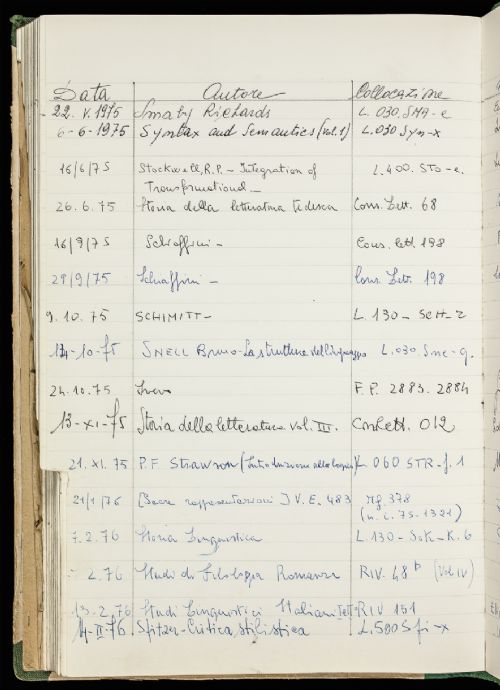 Data Autore Collocazione
22. V. 1975 Smaby Richards L. 030. SMA-e
6-6-1975 Syntax and Semantics (vol. 1) L. 030 Syn-x
16/6/75 Stockwell, R.P. - Integration of L. 400. STO-e.
Transformational -
26.6.75 Storia della letteratura tedesca Cons. Lett. 68
16/9/75 Schiaffini - Cons. lett. 198
29/9/75 Schiaffini - Cons. Lett. 198
9.10.75 SCHIMITT - L. 130 - SCH-z
14-10-75 SNELL Bruno - La struttura del linguaggio L. 030. Sne-g.
24.10.75 Svevo F.P. 2883. 2884
13-XI-75 Storia della letteratura vol. III. Cons. Lett. 012
21.XI.75 P.F. Strawson (Introduzione alla logica) L 060 STR-f.1
21/1/76 [Sacre rappresentazioni] V.E. 483 Mg. 378
(n. i. 75-1321)
7.2.76 Storia Linguistica L. 130 - SOK-K. 6
2.76 Studi di Filologia Romanza RIV. 48 b (Vol IV)
13.2.76 Studi Linguistici Italiani RIV 151
14-II-76 Spitzer - Critica stilistica L. 500 Spi-x